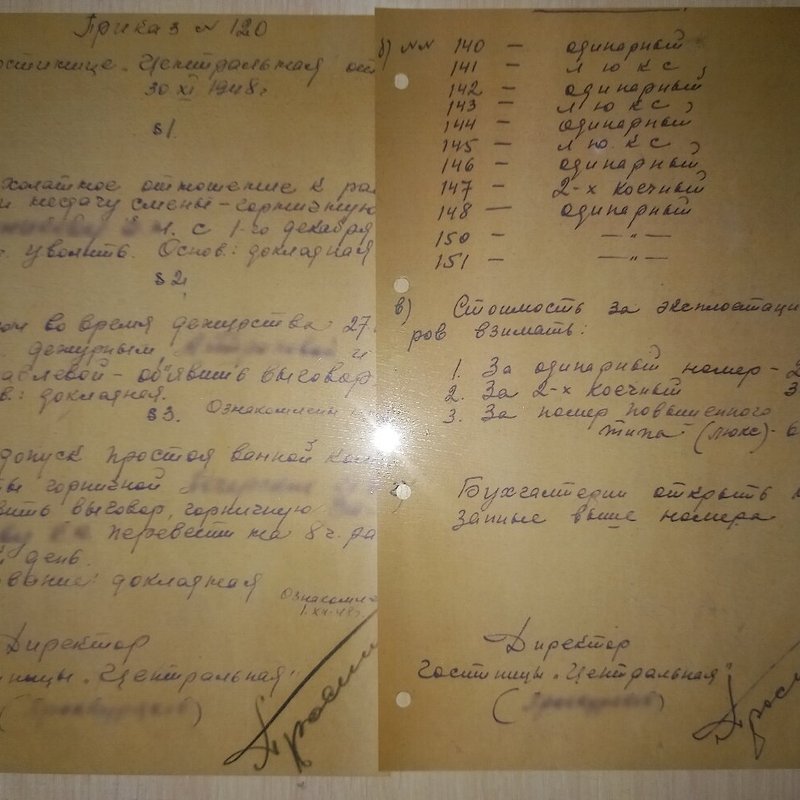 Приказ № 120
остинице "Центральная" от
30 XI 1948 г.
§ 1.
халатное отношение к ра
и несдачу смены - горничную
с 1-го декабря
уволить. Основ: докладная
§ 2.
во время дежурства 27
дежурным и
авлевой - объявить выговор
в: докладная.
§ 3. Ознакомлен
допуск простоя ванной ком
ты горничной
вить выговор, горничную
перевести на 8 ч. ра
й день.
вание: докладная
Ознакомле
1.XII.48г
Директор
иницы "Центральная"
б) №№ 140 — одинарный
141 — люкс,
142 — одинарный,
143 — люкс,
144 — одинарный
145 — люкс,
146 — одинарный,
147 — 2-х коечный
148 — одинарный
150 — —"—
151 — —"—
в) Стоимость за эксплоатаци
ров взимать:
1. За одинарный номер - 2
2. За 2-х коечный 3
3. За номер повышенного
типа (люкс) - 6
Бухгалтерии открыть
занные выше номера
Директор
гостиницы "Центральная"